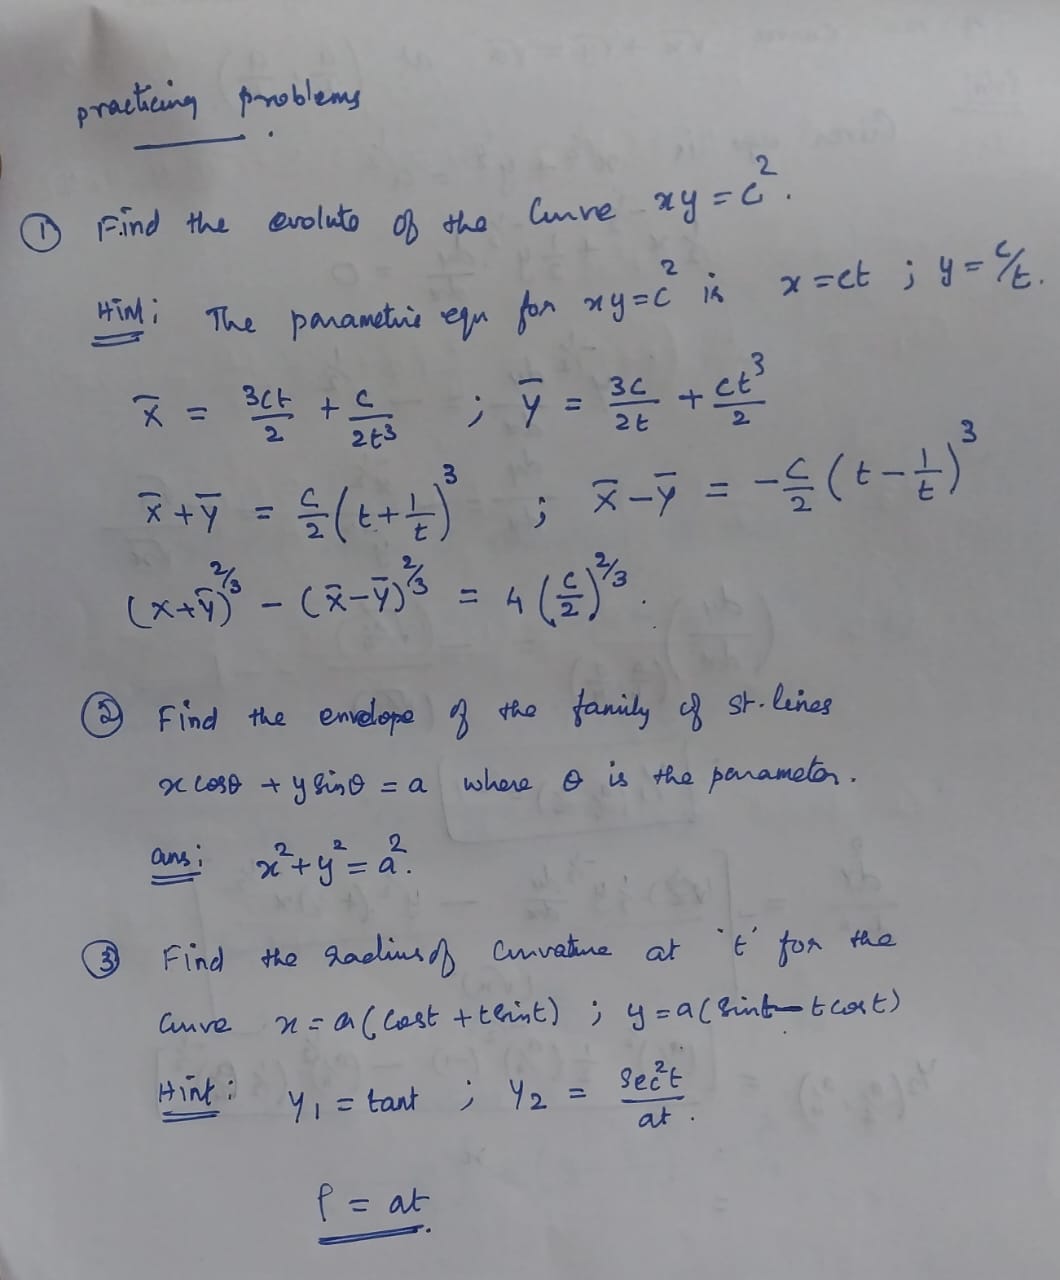 practicing problems.
① Find the evolute of the Curve xy = c².
Hint: The parametric equ for xy=c² is x = ct ; y = c/t.
x̅ = 3ct/2 + c/2t³ ; y̅ = 3c/2t + ct³/2
x̅+y̅ = c/2 (t+1/t)³ ; x̅-y̅ = -c/2 (t-1/t)³
(x+y̅)^2/3 - (x̅-y̅)^2/3 = 4 (c/2)^2/3.
② Find the envelope of the family of st. lines
x cosθ + y sinθ = a where θ is the parameter.
ans: x²+y² = a².
③ Find the radius of curvature at 't' for the
Curve x = a(cost + tsint) ; y = a(sint - tcost)
Hint: y₁ = tant ; y₂ = sec²t/at.
ρ = at.